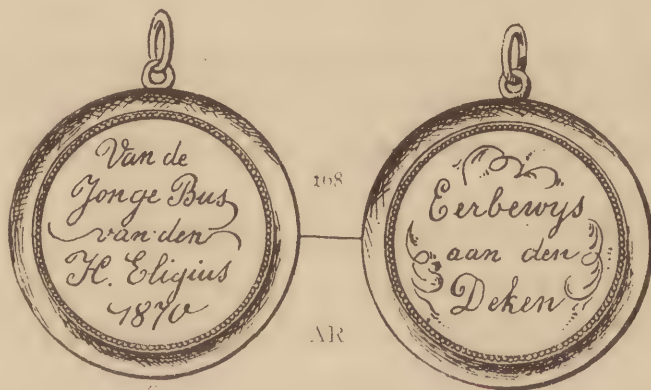 Van de
Jonge Bus
van den
H. Eligius
1870
168
AR
Eerbewys
aan den
Deken